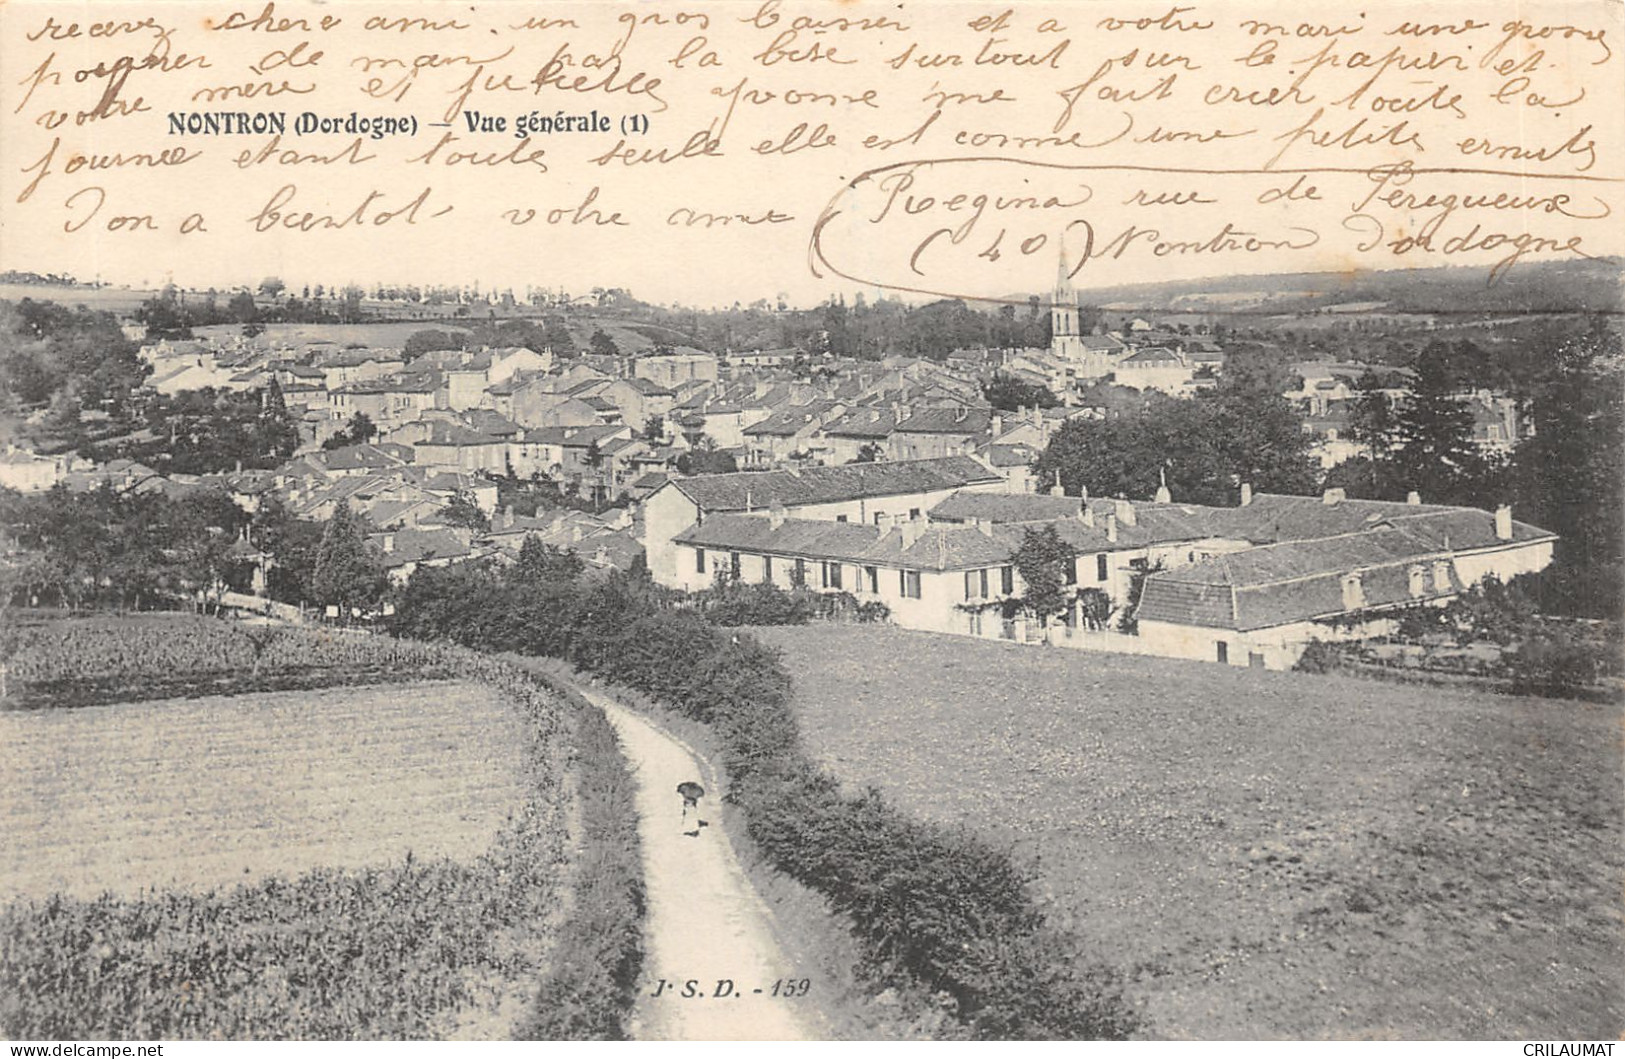 recevez chere ami. un gros baisser et a votre mari une grosse
poigner de main pas la bise surtout sur le papier et
votre mère et Juliette yvome me fait crier toute la
NONTRON (Dordogne) — Vue générale (1)
journee etant toute seule elle est comme une petite
Don a bientot votre amie
Regina rue de Peregueux
(40) Nontron Dordogne
J. S. D. - 159
www.delcampe.net
CRILAUMAT